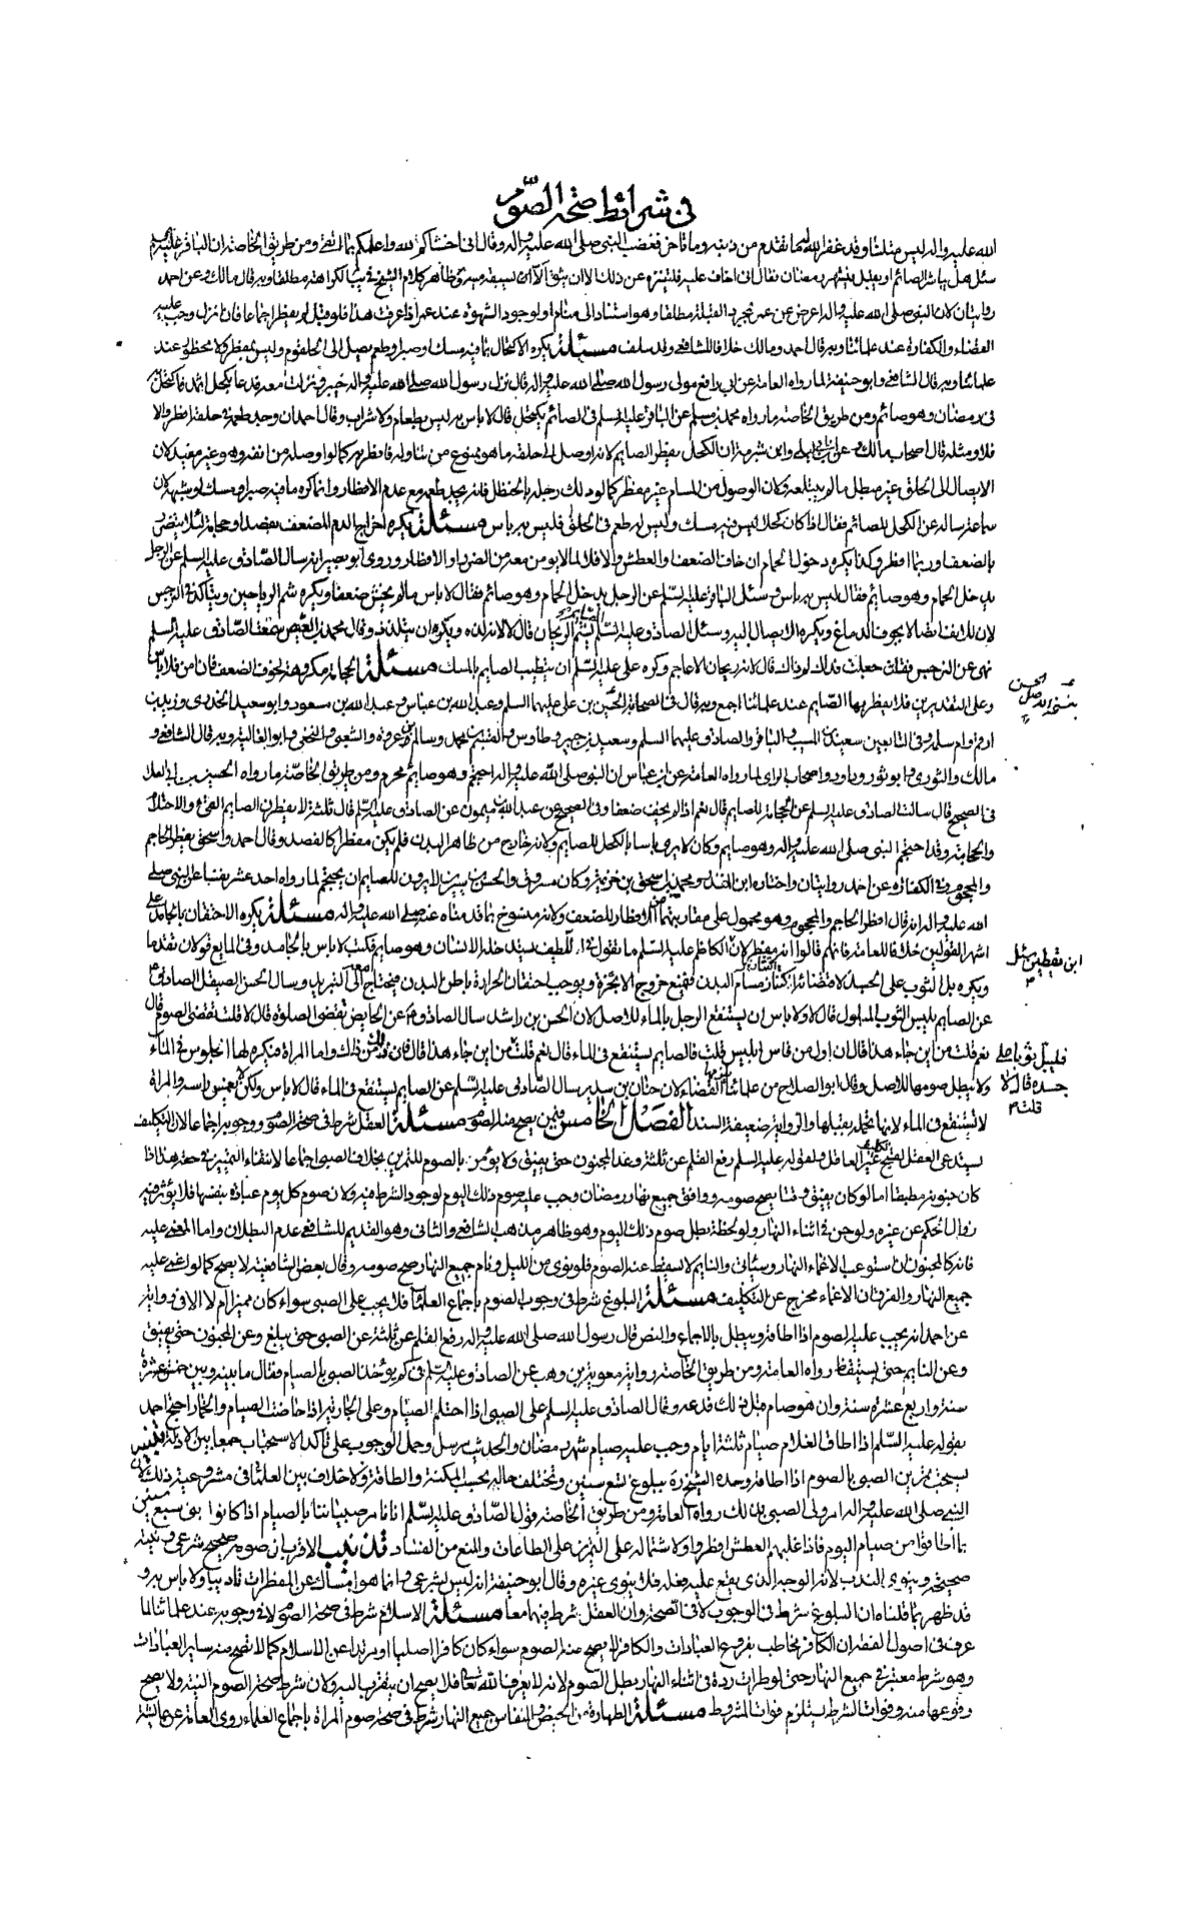 في شرائط صحة الصوم
الله عليه واله ليس مثلنا وقد غفر الله لك ما تقدم من ذنبه وما تأخر فغضب النبي صلى الله عليه واله وقال اني اخشاكم لله واعلمكم بما اتقى ومن طريق الخاصة ان الباقر عليه السلم
سئل هل يباشر الصائم او يقبل في شهر رمضان فقال اني اخاف عليه فليتنزه عن ذلك الا ان يثق ان لا يسبقه منيه وظاهر كلام الشيخ في الكراهة مطلقا وبه قال مالك وعن احمد
روايتان لان النبي صلى الله عليه واله اعرض عن عمر بمجرد القبلة مطلقا وهو استناد الى منام او لوجود الشهوة عند عمر اذا عرفت هذا فلو قبل لم يفطر اجماعا فان انزل وجب عليه
القضاء والكفارة عند علمائنا وبه قال احمد ومالك خلافا للشافعي وقد سلف مسئلة يكره الاكتحال بما فيه مسك او صبر او طعم يصل الى الحلقوم وليس بمفطر ولا محظور عند
علمائنا وبه قال الشافعي وابو حنيفة لما رواه العامة عن ابي رافع مولى رسول الله صلى الله عليه واله قال نزل رسول الله صلى الله عليه واله خيبر ونزلت معه فدعا بكحل اثمد فاكتحل به
في رمضان وهو صائم ومن طريق الخاصة ما رواه محمد بن مسلم عن الباقر عليه السلم في الصائم يكتحل قال لا باس به ليس بطعام ولا شراب وقال احمد ان وجد طعمه في حلقه افطر والا
فلا ومثله قال اصحاب مالك وعن ابن ابي ليلى وابن شبرمة ان الكحل يفطر الصايم لانه اوصل الى حلقه ما هو ممنوع من تناوله فافطر به كما لو اوصله من انفه وهو غير مفيد لان
الايصال الى الحلق غير مبطل ما لم يبتلعه وكان الوصول من المسام غير مفطر كما لو دلك رجله بالحنظل فانه يجد طعمه مع عدم الافطار وانما كره ما فيه صبر او مسك لو شبهه لان
سماعة ساله عن الكحل للصائم فقال اذا كان كحلا ليس فيه مسك وليس له طعم في الحلق فليس به باس مسئلة يكره اخراج الدم المضعف بفصد او حجامة لئلا ينضر
بالضعف وربما افطر وكذا يكره دخول الحمام ان خاف الضعف او العطش والا فلا لما لا يومن معه من الضرر او الافطار وروى ابو بصير انه سال الصادق عليه السلم عن الرجل
يدخل الحمام وهو صائم فقال ليس به باس وسئل الباقر عليه السلم عن الرجل يدخل الحمام وهو صائم فقال لا باس ما لم يخش ضعفا ويكره شم الرياحين ويتاكد في النرجس
لان للانف اتصالا بجوف الدماغ ويكره الايصال اليه وسئل الصادق عليه السلم الصائم يشم الريحان قال لا لانه لذة ويكره ان يتلذذ وقال محمد بن الفيض سمعت الصادق عليه السلم
نهى عن النرجس فقلت جعلت فداك لم ذلك قال لانه ريحان الاعاجم وكره علي عليه السلم ان يتطيب الصايم بالمسك مسئلة الحجامة مكروهة لخوف الضعف فان امن فلا باس
وعلى التقديرين فلا يفطر بها الصايم عند علمائنا اجمع وبه قال في الصحابة الحسين بن علي عليهما السلم وعبد الله بن عباس وعبد الله بن مسعود وابو سعيد الخدري وزيد بن
ارقم وام سلمة وفي التابعين سعيد بن المسيب والباقر والصادق عليهما السلم وسعيد بن جبير وطاوس والقسم بن محمد وسالم وعروة والشعبي والنخعي وابو العالية وبه قال الشافعي و
مالك والثوري وابو ثور وداود واصحاب الراي لما رواه العامة عن ابن عباس ان النبي صلى الله عليه واله احتجم وهو صايم محرم ومن طريق الخاصة ما رواه الحسين بن ابي العلا
في الصحيح قال سالت الصادق عليه السلم عن الحجامة للصايم قال نعم اذا لم يخف ضعفا وفي الصحيح عن عبد الله بن ميمون عن الصادق عليه السلم قال ثلثة لا يفطرن الصايم القيء والاحتلام
والحجامة وقد احتجم النبي صلى الله عليه واله وهو صايم وكان لا يرى باسا بالكحل للصايم ولانه خارج من ظاهر البدن فلم يكن مفطرا كالفصد وقال احمد واسحق يفطر الحاجم
والمحجوم وفي الكفارة عن احمد روايتان واختاره ابن المنذر ومحمد بن اسحق بن خزيمة وكان مسروق والحسن وابن سيرين لا يرون للصايم ان يحتجم لما رواه احد عشر نفسا عن النبي صلى
الله عليه واله انه قال افطر الحاجم والمحجوم وهو محمول على مقاربتهما الافطار للضعف ولانه منسوخ بما قدمناه عنه صلى الله عليه واله مسئلة يكره الاحتقان بالجامد على
اشهر القولين خلافا للعامة فانهم قالوا انه مفطر لان الكاظم عليه السلم ما تقول في التلطف يستدخله الانسان وهو صايم فكتب لا باس بالجامد وفي المايع قولان تقدما
ويكره بل الثوب على الجسد لاقتضائه اكتناز مسام البدن فيمنع خروج الابخرة ويوجب احتقان الحرارة بباطن البدن فيحتاج معه الى التبريد وسال الحسن الصيقل الصادق ع
عن الصايم يلبس الثوب المبلول قال لا ولا باس ان يستنقع الرجل بالماء للاصل لان الحسن بن راشد سال الصادق ع عن الحايض تقضي الصلوة قال لا قلت تقضي الصوم قال
نعم قلت من اين جاء هذا قال ان اول من قاس ابليس قلت فالصايم يستنقع في الماء قال نعم قلت من اين جاء هذا قال من ذلك واما المراة فيكره لها الجلوس في الماء
ولا يبطل صومها للاصل وقال ابو الصلاح من علمائنا يلزمها القضاء لان حنان بن سدير سال الصادق عليه السلم عن الصايم يستنقع في الماء قال لا باس ولكن لا يغمس راسه والمراة
لا تستنقع في الماء لانها تحمله بقبلها والرواية ضعيفة السند الفصل الخامس فيمن يصح منه الصوم مسئلة العقل شرط في صحة الصوم ووجوبه اجماعا لان التكليف
يستدعي العقل لقبح تكليف غير العاقل ولقوله عليه السلم رفع القلم عن ثلثة وعد المجنون حتى يفيق ولا يؤمر بالصوم للتمرين بخلاف الصبي اجماعا لانتفاء التمييز في حقه هذا اذا
كان جنونه مطبقا اما لو كان يفيق وقتا يصح صومه ووافق جميع نهار رمضان وجب عليه صوم ذلك اليوم لوجود الشرط فيه ولان صوم كل يوم عبادة بنفسها فلا يؤثر فيه
زوال الحكم عن غيره ولو جن في اثناء النهار ولو لحظة بطل صوم ذلك اليوم وهو ظاهر مذهب الشافعي والثاني وهو القديم للشافعي عدم البطلان واما المغمى عليه
فانه كالمجنون ان استوعب الاغماء النهار وسياتي والنايم لا يسقط عنه الصوم فلو نوى من الليل ونام جميع النهار صح صومه وقال بعض الشافعية لا يصح كما لو اغمي عليه
جميع النهار والفرق ان الاغماء مخرج عن التكليف مسئلة البلوغ شرط في وجوب الصوم باجماع العلماء فلا يجب على الصبي سواء كان مميزا ام لا الا في رواية
عن احمد انه يجب عليه الصوم اذا اطاقه ويبطل بالاجماع والنص قال رسول الله صلى الله عليه واله رفع القلم عن ثلثة عن الصبي حتى يبلغ وعن المجنون حتى يفيق
وعن النايم حتى يستيقظ رواه العامة ومن طريق الخاصة رواية معوية بن وهب عن الصادق عليه السلم في كم يؤخذ الصبي بالصيام فقال ما بينه وبين خمس عشرة
سنة واربع عشرة سنة وان هو صام قبل ذلك فدعه وقال الصادق عليه السلم على الصبي اذا احتلم الصيام وعلى الجارية اذا حاضت الصيام والخمار احتج احمد
بقوله عليه السلم اذا اطاق الغلام صيام ثلثة ايام وجب عليه صيام شهر رمضان والحديث مرسل وحمل الوجوب على تاكد الاستحباب جمعا بين الادلة
يستحب تمرين الصبي بالصوم اذا اطاقه وحده الشيخ ره ببلوغ تسع سنين وتختلف حاله بحسب المكنة والطاقة ولا خلاف بين العلماء في مشروعية ذلك لان
النبي صلى الله عليه واله امر ولي الصبي بذلك رواه العامة ومن طريق الخاصة قول الصادق عليه السلم انا نامر صبياننا بالصيام اذا كانوا بني سبع سنين
بما اطاقوا من صيام اليوم فاذا غلبهم العطش افطروا ولاشتماله على التمرين على الطاعات والمنع من الفساد تذنيب الاقرب ان صومه صحيح شرعي ونيته
صحيحة وينوي الندب لانه الوجه الذي يقع عليه فعله فلا ينوي غيره وقال ابو حنيفة انه ليس بشرعي وانما هو امساك عن المفطرات تاديبا ولا باس به و
قد ظهر بما قلناه ان البلوغ شرط في الوجوب لا في الصحة وان العقل شرط فيهما معا مسئلة الاسلام شرط في صحة الصوم لا في وجوبه عند علمائنا لما
عرف في اصول الفقه ان الكافر مخاطب بفروع العبادات والكافر لا يصح منه الصوم سواء كان كافرا اصليا او مرتدا عن الاسلام كما لا تصح منه ساير العبادات
وهو شرط معتبر في جميع النهار حتى لو طرات ردة في اثناء النهار بطل الصوم لانه لا يعرف الله تعالى فلا يصح ان يتقرب اليه ولان شرط صحة الصوم النية ولا يصح
وقوعها منه وفوات الشرط يستلزم فوات المشروط مسئلة الطهارة من الحيض والنفاس جميع النهار شرط في صحة صوم المراة باجماع العلماء روى العامة عن عائشة
ابن يقطين سئل
قليل يثوبا على
جسده قال لا
قلت